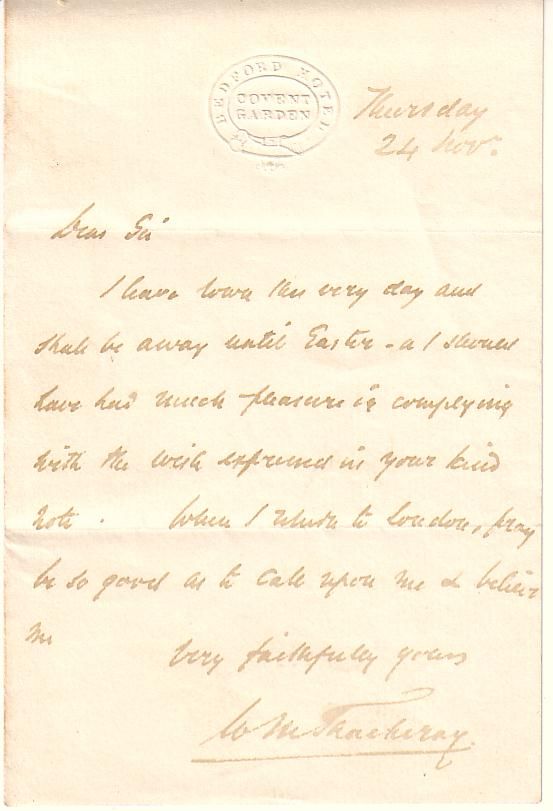 BEDFORD HOTEL
COVENT
GARDEN
Thursday
24 Nov.
Dear Sir
I leave town this very day and
shall be away until Easter - or I should
have had much pleasure in complying
with the wish expressed in your kind
note. When I return to London, pray
be so good as to call upon me & believe
me
Very faithfully yours
W M Thackeray.